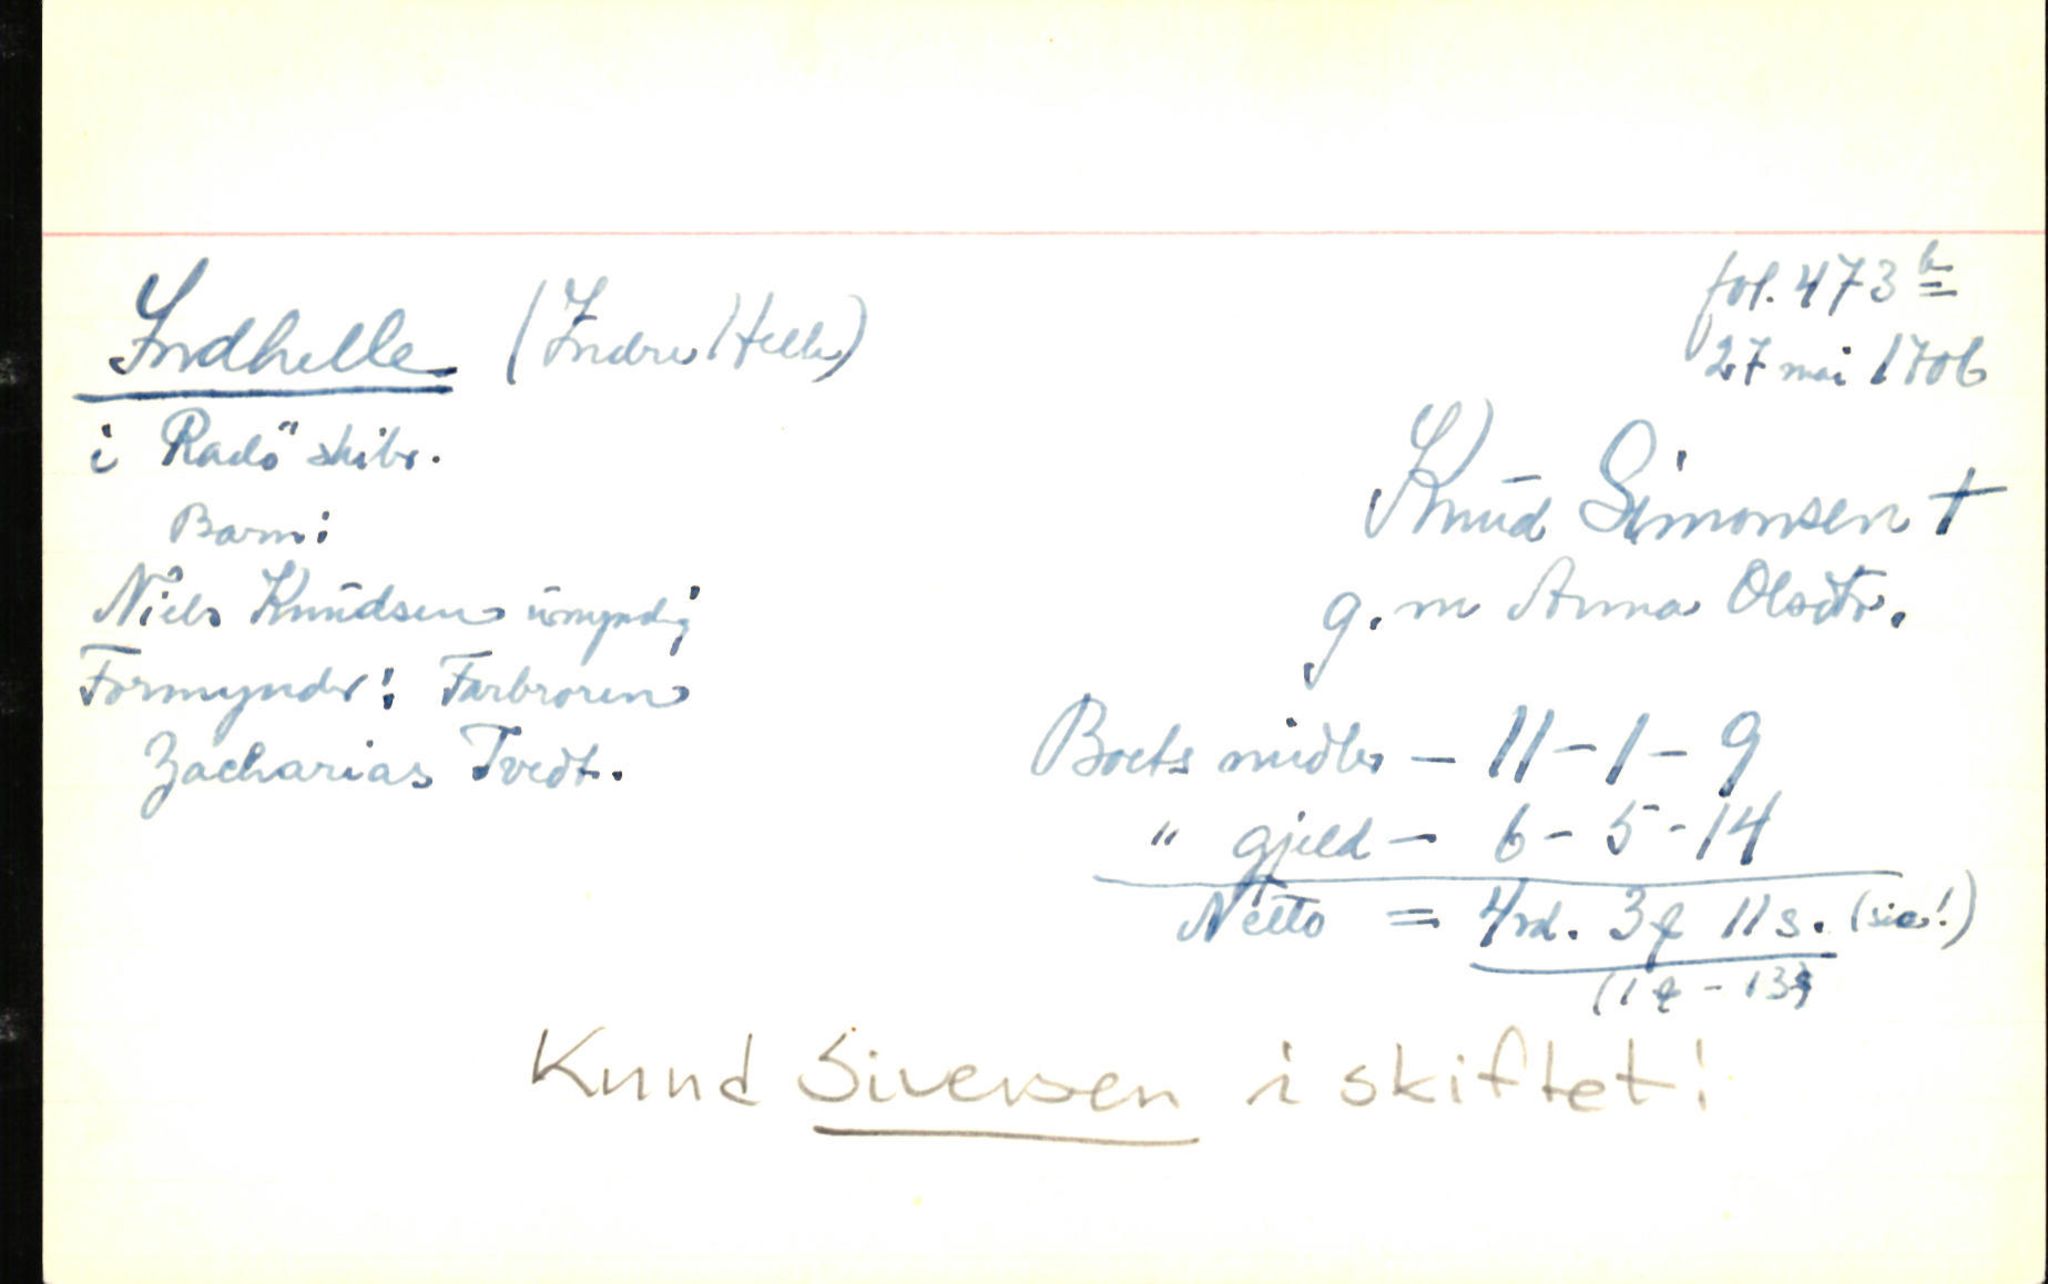 Indhelle (Indre Helle)
fol. 473 b
27 mai 1706
i Radö skibr.
Knud Simonsen †
g. m Anna Olsdtr.
Barn:
Niels Knudsen umyndig
Formynder: Farbroren
Zacharias Tvedt.
Boets midler - 11 - 1 - 9
" gjeld - 6 - 5 - 14
Netto = 4 rd. 3 ₰ 11 s. (sic!)
(1 ₰ - 13 s)
Knud Siversen i skiftet!